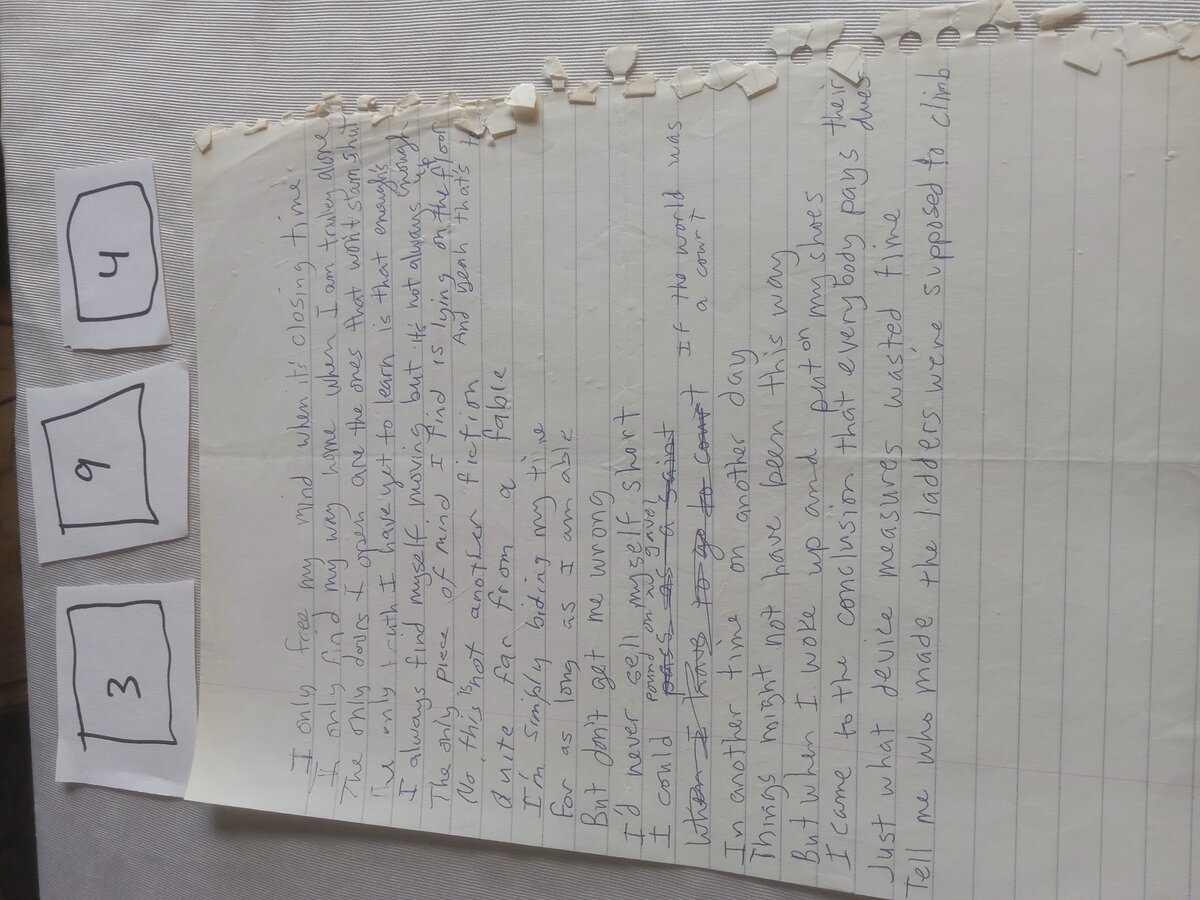 3
9
4
I only free my mind when it's closing time
I only find my way home when I am truley alone
The only doors I open are the ones that won't slam shut
The only truth I have yet to learn is that enough's enough
I always find myself moving but it's not always up
The only piece of mind I find is lying on the floor
No, this is not another fiction And yeah that's
Quite far from a fable
I'm simply biding my time
For as long as I am able
But don't get me wrong
I'd never sell myself short
I could pound on my gavel pass as a saint
When I have to go to court If the world was a court
In another time on another day
Things might not have been this way
But when I woke up and put on my shoes
I came to the conclusion that everybody pays their dues
Just what device measures wasted time
Tell me who made the ladders we're supposed to climb